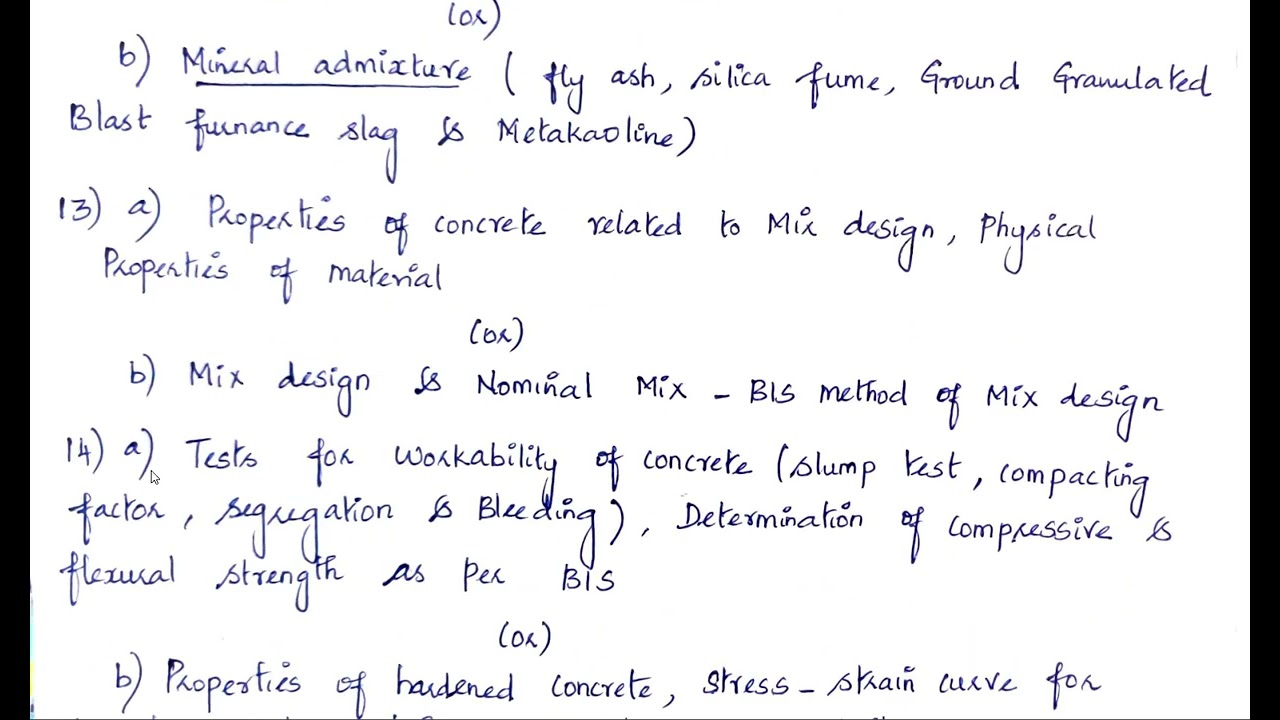 (or)
b) Mineral admixture ( fly ash, silica fume, Ground Granulated
Blast furnance slag & Metakaoline)
13) a) Properties of concrete related to Mix design, Physical
Properties of material
(or)
b) Mix design & Nominal Mix - BIS method of Mix design
14) a) Tests for workability of concrete (slump test, compacting
factor, segregation & Bleeding), Determination of compressive &
flexural strength as per BIS
(or)
b) Properties of hardened concrete, stress - strain curve for